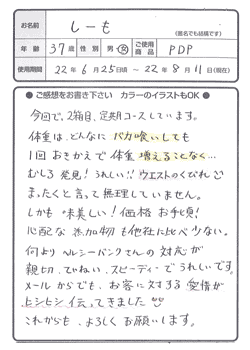 お名前 しーも (匿名でも結構です)
年齢 37歳 性別 男・女 ご使用商品 PDP
使用期間 22年6月25日頃 ～ 22年8月11日(現在)
● ご感想をお書き下さい カラーのイラストもOK ●
今回で、2箱目、定期コースしています。
体重は、どんなにバカ喰いしても
1回おきかえで体重増えることなく…
むしろ発見！うれしい!! ウエストのくびれが
まったくと言って無理していません。
しかも味美しい！価格お手頃！
心配な添加物も他社に比べ少ない。
何よりヘルシーバンクさんの対応が
親切、ていねい、スピーディーでうれしいです。
メールからでも、お客に対する愛情が
ヒシヒシ伝ってきました
これからも、よろしくお願いします。